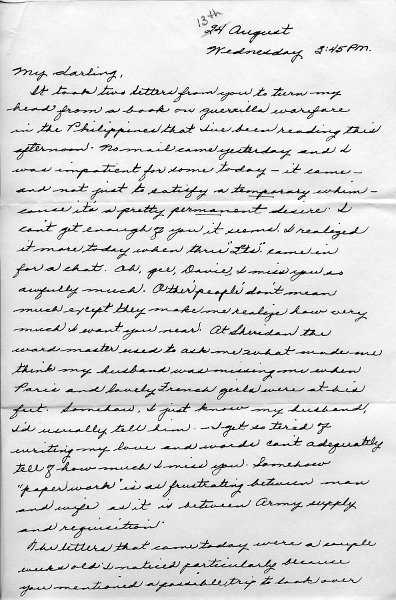 13th
24 August
Wednesday 2:45 PM.
My darling,
It took two letters from you to turn my
head from a book on guerilla warfare
in the Philippines that I've been reading this
afternoon. No mail came yesterday and I
was impatient for some today - it came -
and not just to satisfy a temporary whim -
cause its a pretty permanent desire. I
can't get enough of you it seems. I realized
it more today when three "Lts" came in
for a chat. Oh, gee, Davie, I miss you so
awfully much. Other people don't mean
much except they make me realize how very
much I want you near. At Sheridan the
ward master used to ask me what made me
think my husband was missing me when
Paris and lovely French girls were at his
feet. Somehow, I just know my husband,
I'd usually tell him. - I get so tired of
writing my love and words can't adequately
tell of how much I miss you. Somehow
"paper work" is as frustrating between man
and wife as it is between Army supply
and requisition.
The letters that came today were a couple
weeks old. I noticed particularly because
you mentioned a possible trip to look over